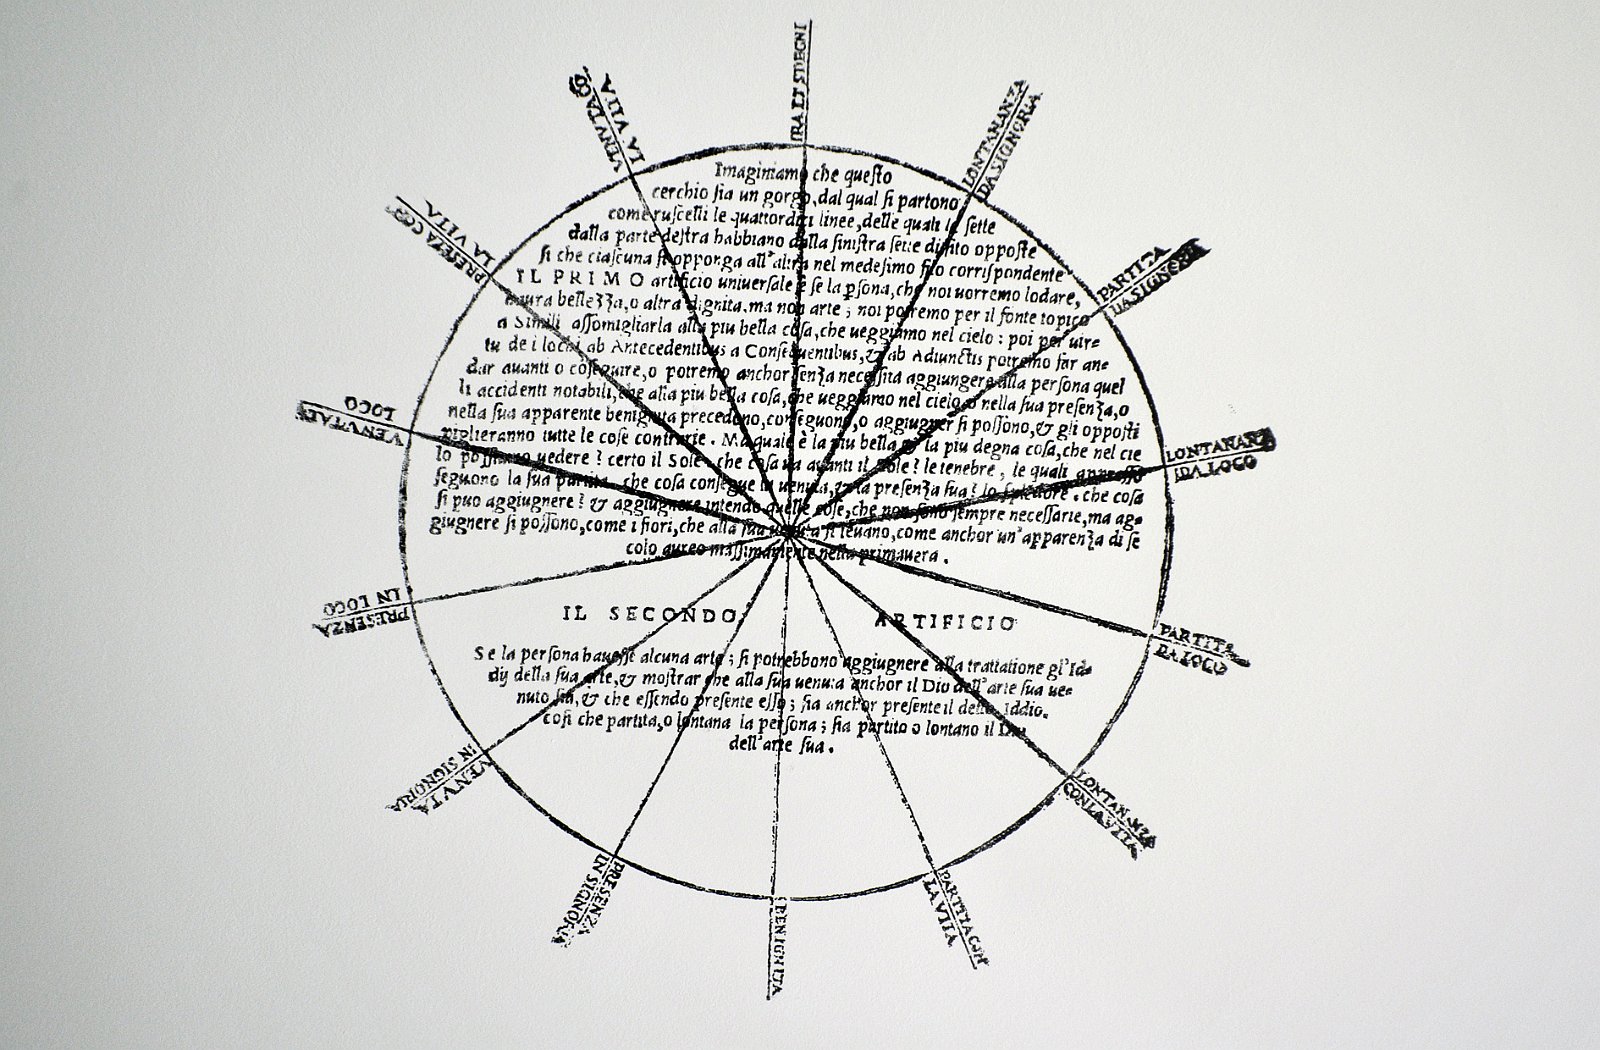 IRA ET SDEGNI
LONTANANZA
DA SIGNORIA
PARTITA
DA SIGNORIA
LONTANANZA
DA LOCO
PARTITA
DA LOCO
LONTANANZA
CON LA VITA
PARTITA CON
LA VITA
BENIGNITA
PRESENZA
IN SIGNORIA
VENVTA
IN SIGNORIA
PRESENZA
IN LOCO
VENVTA
LOCO
PRESENZA CO
LA VITA
VENVTA CO
LA VITA
Imaginiamo che queſto
cerchio ſia un gorgo, dal qual ſi partono
come ruſcelli le quattordici linee, delle quali le ſette
dalla parte deſtra habbiano dalla ſiniſtra ſette di ſito oppoſte
ſi che ciaſcuna ſi opponga all'altra nel medeſimo filo corriſpondente
IL PRIMO artificio uniuerſale è se la pſona, che noi uorremo lodare,
haura bellezza, o altra dignita, ma non arte; noi potremo per il fonte topico
a Simili aſſomigliarla alla piu bella coſa, che ueggiamo nel cielo: poi per uir=
tu de i lochi ab Antecedentibus a Conſequentibus, & ab Adiunctis potremo far an=
dar auanti o cōſeguire, o potremo anchor ſenza neceſſita aggiungere alla perſona quel
li accidenti notabili, che alla piu bella coſa, che ueggiamo nel cielo, o nella ſua preſenza, o
nella ſua apparente benignita precedono, conſeguono, o aggiugner ſi poſſono, & gli oppoſti
piglieranno tutte le coſe contrarie. Ma quale è la piu bella & la piu degna coſa, che nel cie
lo poſſiamo uedere? certo il Sole. che coſa ua auanti il Sole? le tenebre, le quali appreſſo
ſeguono la ſua partita. che coſa conſegue la uenuta, & la preſenza ſua? lo ſplendore. che coſa
ſi puo aggiugnere? & aggiugnere intendo quelle coſe, che non ſono ſempre neceſſarie, ma ag=
giugnere ſi poſſono, come i fiori, che alla ſua uenuta ſi leuano, come anchor un'apparenza di ſe
colo aureo maſſimamente nella primauera.
IL SECONDO ARTIFICIO
Se la perſona haueſſe alcuna arte; ſi potrebbono aggiugnere alla trattatione gl'Id=
dij della ſua arte, & moſtrar che alla ſua uenuta anchor il Dio dell'arte ſua ue=
nuto ſia, & che eſſendo preſente eſſo; ſia anchor preſente il detto Iddio.
coſi che partita, o lontana la perſona; ſia partito o lontano il Dio
dell'arte ſua.